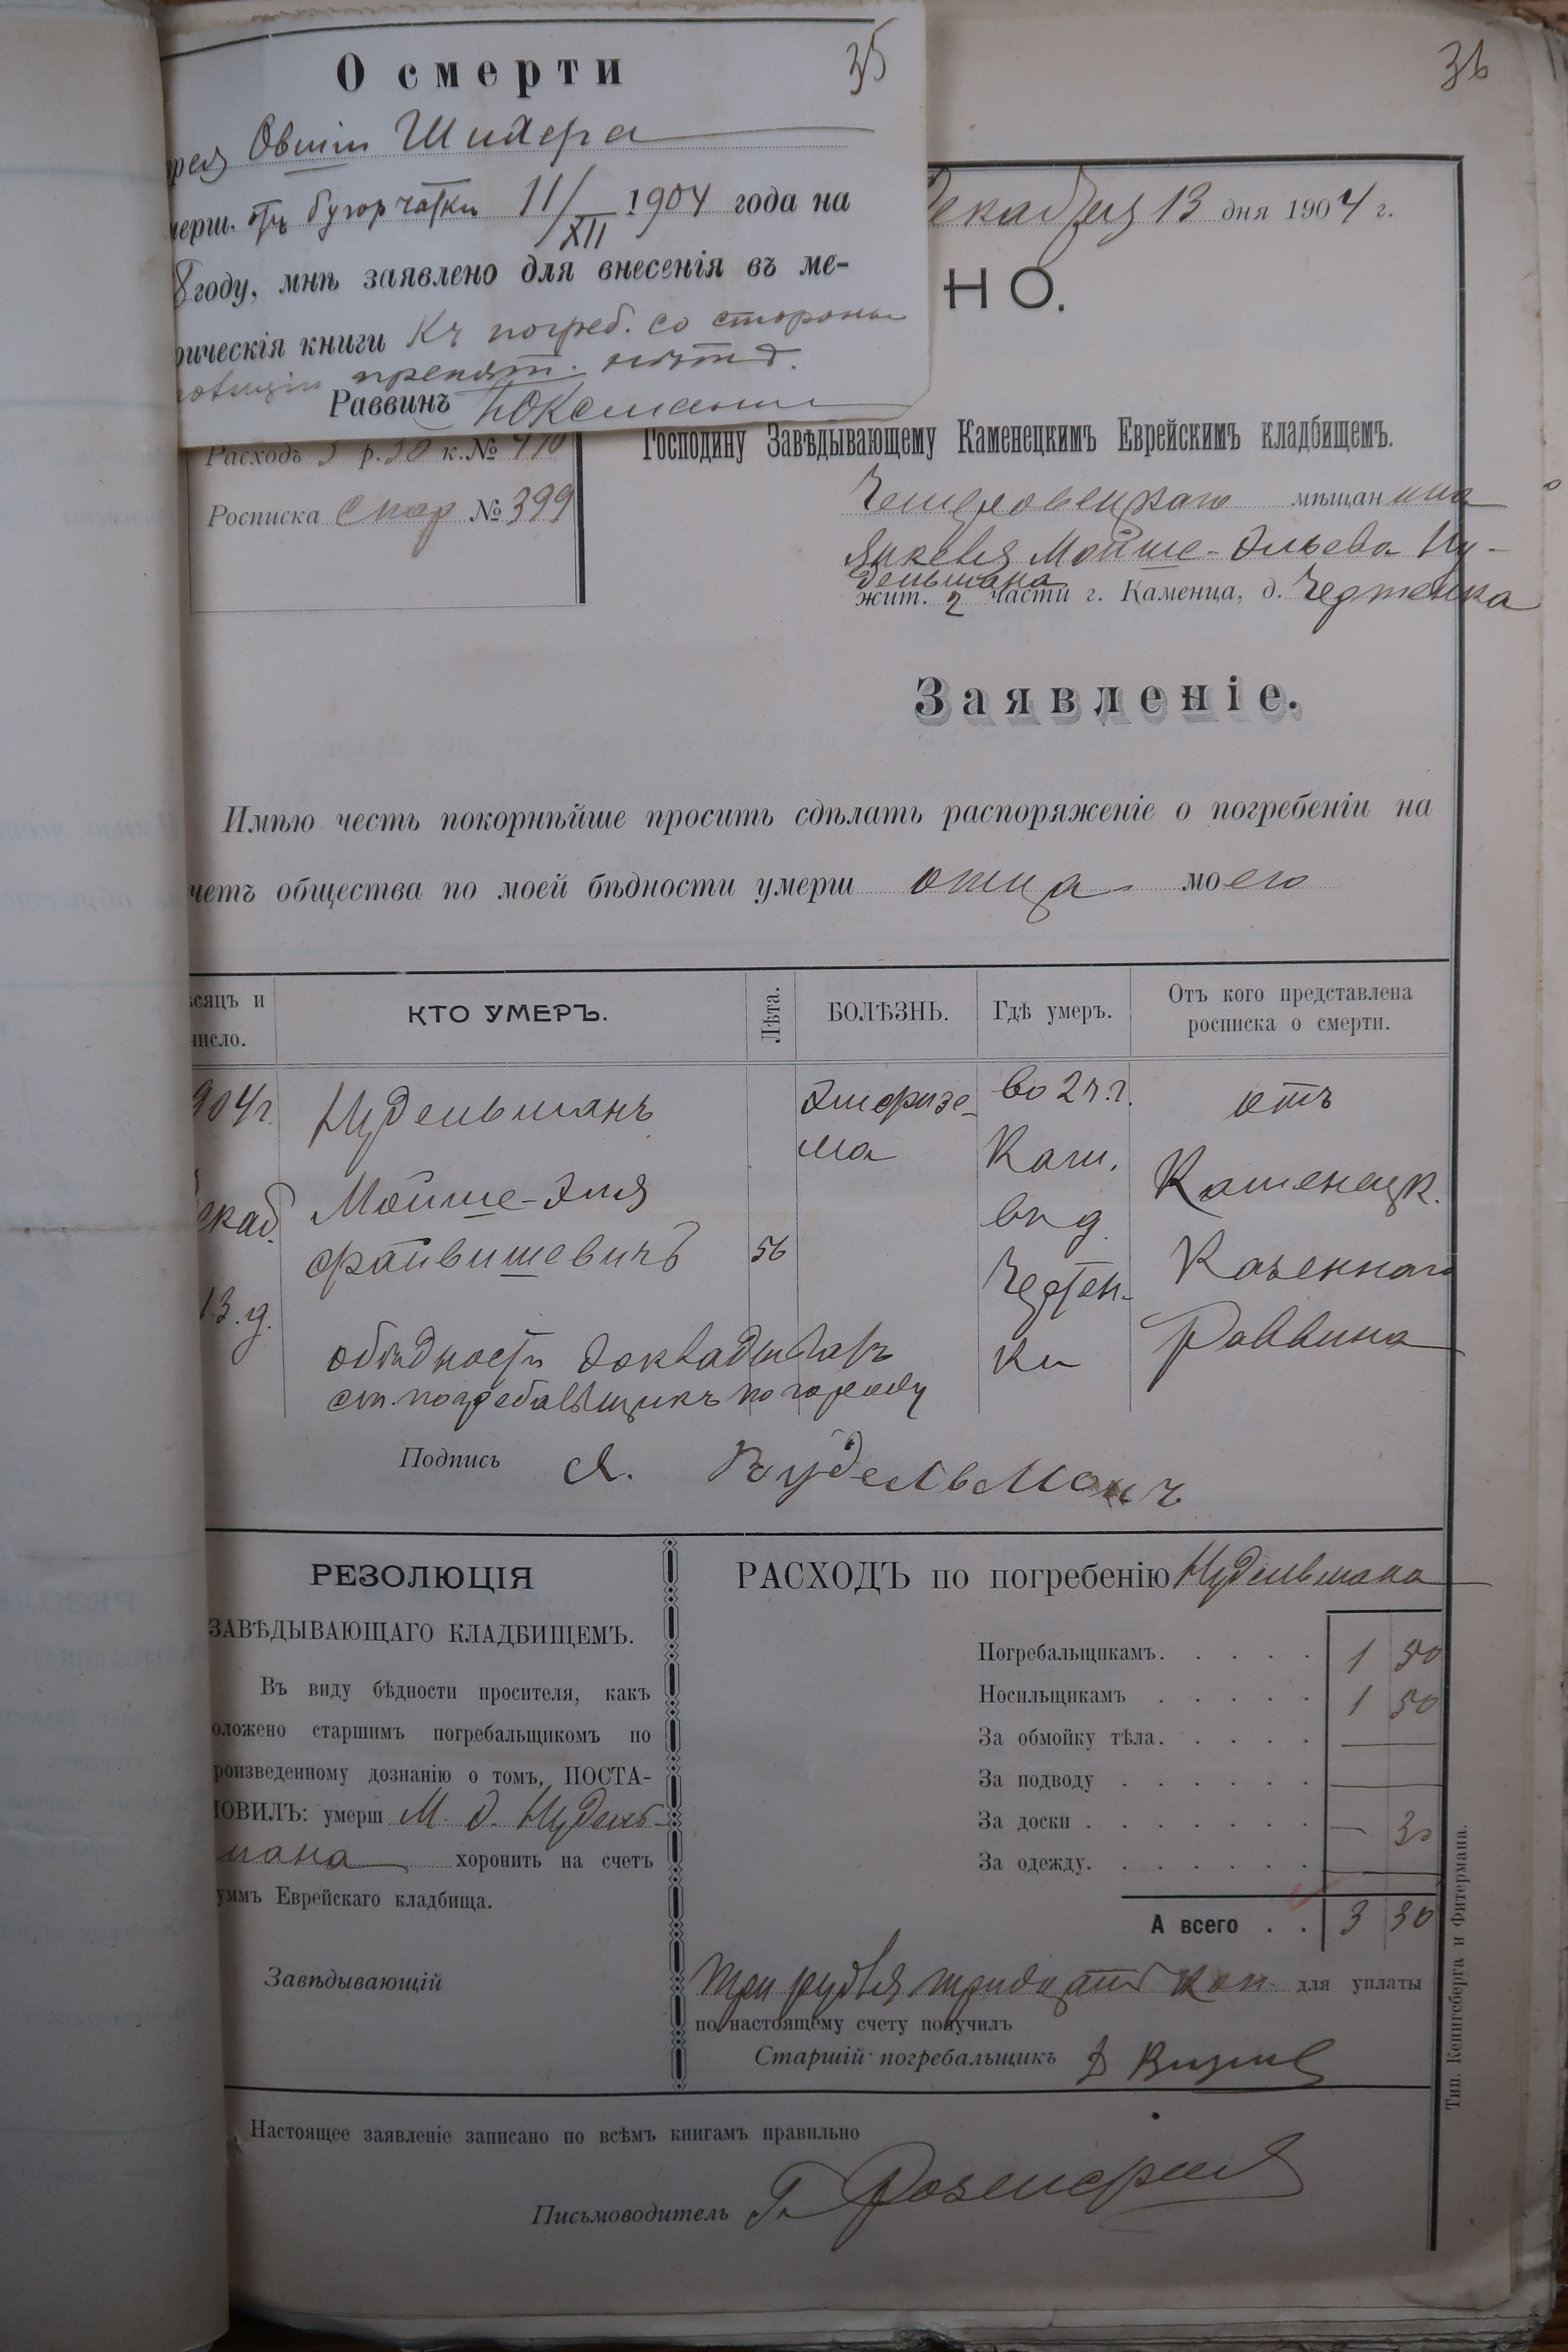 О смерти
35
36
Овшія Шихера
мерш. отъ бугорчатки 11/XII 1904 года на
8 году, мнѣ заявлено для внесенія въ ме-
рическія книги Къ погреб. со стороны
полиціи препят. нѣтъ.
Раввинъ
Декабря 13 дня 1904 г.
НО.
Расходъ 3 р. 30 к. № 410
Росписка № 399
Господину Завѣдывающему Каменецкимъ Еврейскимъ кладбищемъ.
мѣщанина
Янкеля Мойше-Эльева Ну-
дельмана
жит. 2 части г. Каменца, д. Чертенка
Заявленіе.
Имѣю честь покорнѣйше просить сдѣлать распоряженіе о погребеніи на
четъ общества по моей бѣдности умерш отца моего
сяцъ и
число.
КТО УМЕРЪ.
Лѣта.
БОЛѢЗНЬ.
Гдѣ умеръ.
Отъ кого представлена
росписка о смерти.
904 г.
декаб.
13. д.
Нудельманъ
Мойше-Эля
Файвишевичъ
56
Эмфизе-
ма
во 2 ч. г.
Кам.
въ д.
Чертен-
ки
отъ
Каменецк.
Казеннаго
Раввина
о бѣдности докладывалъ
ст. погребальщикъ по городу
Подпись Я. Нудельманъ
РЕЗОЛЮЦІЯ
ЗАВѢДЫВАЮЩАГО КЛАДБИЩЕМЪ.
Въ виду бѣдности просителя, какъ
оложено старшимъ погребальщикомъ по
роизведенному дознанію о томъ, ПОСТА-
НОВИЛЪ: умерш М. Э. Нудель-
мана хоронить на счетъ
уммъ Еврейскаго кладбища.
Завѣдывающій
РАСХОДЪ по погребенію Нудельмана
Погребальщикамъ. 1 50
Носильщикамъ 1 50
За обмойку тѣла. —
За подводу —
За доски — 30
За одежду. —
А всего 3 30
Три рубля тридцать коп. для уплаты
по настоящему счету получилъ
Старшій погребальщикъ
Настоящее заявленіе записано по всѣмъ книгамъ правильно
Письмоводитель
Тип. Кенигсберга и Фитермана.